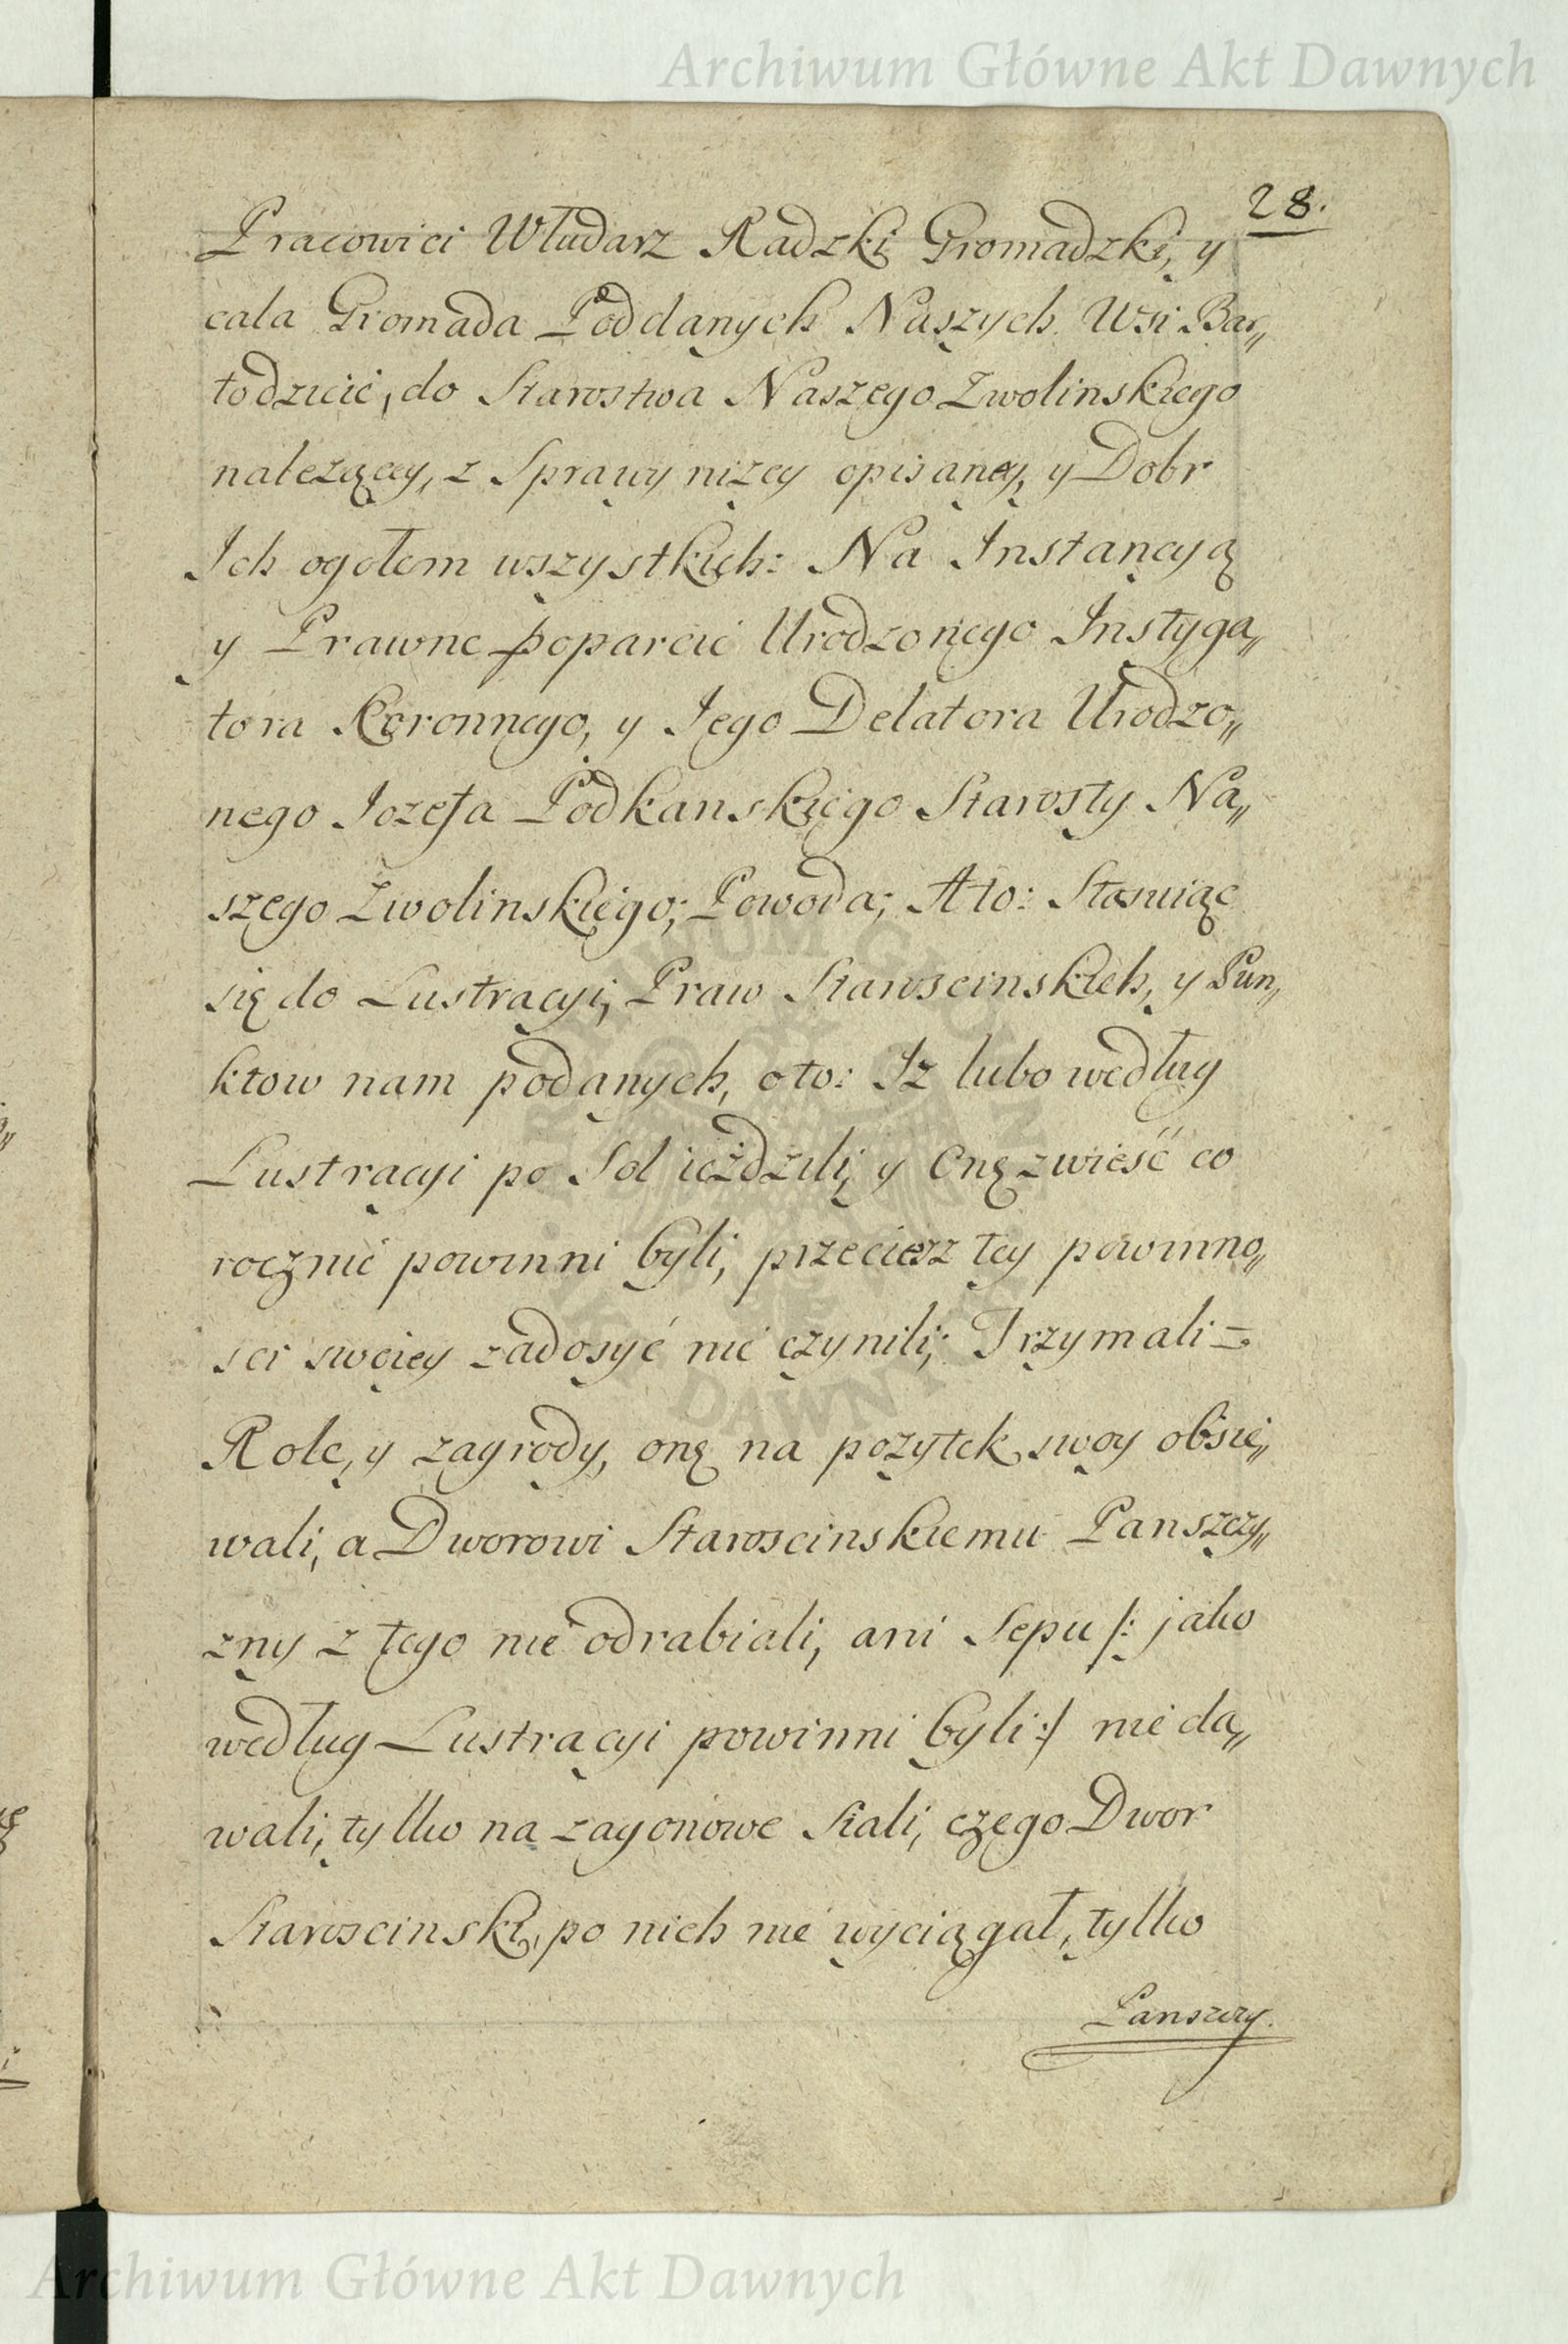 Archiwum Główne Akt Dawnych
28.
Pracowici Włudarz Radzki Gromadzki, y
cala Gromada Poddanych Naszych Wsi Bar„
todzieie, do Starostwa Naszego Zwolinskiego
nalezący, z Sprawy nizey opisaney, y Dobr
Ich ogołem wszystkich: Na Instancyą
y Prawne poparcie Urodzonego Instyga„
tora Koronnego, y Jego Delatora Urodzo„
nego Jozefa Podkanskiego Starosty Na„
szego Zwolinskiego; Powoda; A to: Stosuiąc
się do Lustracyi, Praw Staroscinskich, y Pun„
ktow nam podanych, oto: Iz lubo według
Lustracyi po Sol ieździli, y Onę zwieść co
rocznie powinni byli, przeciesz tey powinno„
sci swoiey zadosyć nie czynili; Trzymali
Role, y zagrody, onę na pozytek swoy obsie„
wali, a Dworowi Staroscinskiemu Panszczy„
zny z tego nie odrabiali, ani Sepu /: jako
według Lustracyi powinni byli :/ nie da„
wali, tylko na zagonowe siali, czego Dwor
Staroscinski, po nich nie wyciągał, tylko
Panszczy.
Archiwum Główne Akt Dawnych